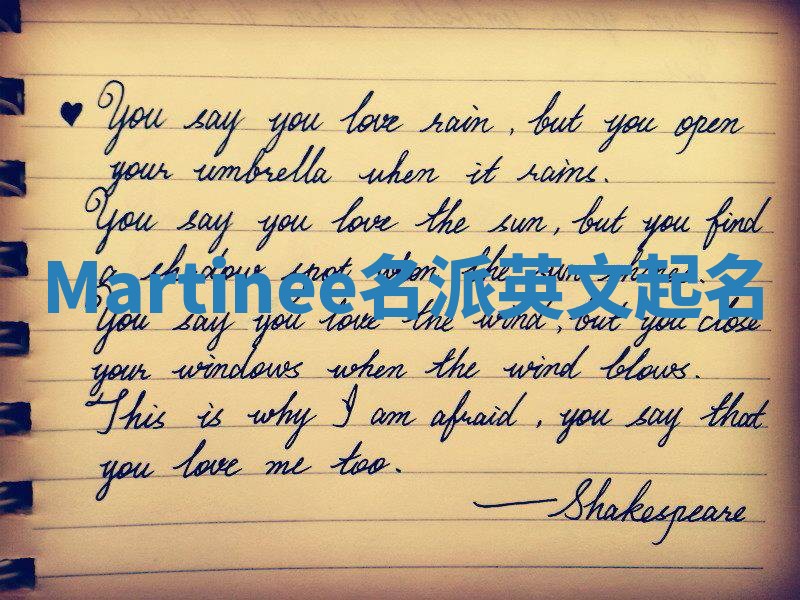 ♥ You say you love rain, but you open
your umbrella when it rains.
You say you love the sun, but you find
a shadow spot when the sun shines.
Martinee名派英文起名
You say you love the wind, but you close
your windows when the wind blows.
This is why I am afraid, you say that
you love me too.
—Shakespeare